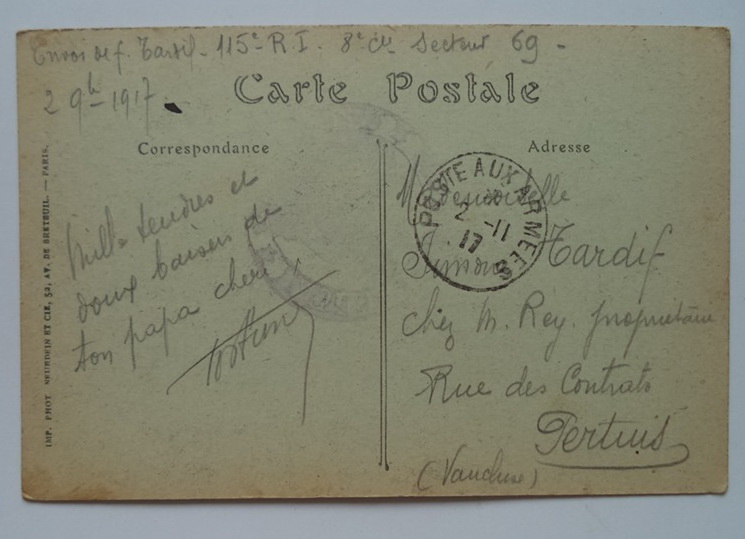 Envoi de f. Tardif - 115e R. I. 8e Cie Secteur 69 -
2 9b - 1917
Carte Postale
Correspondance
Mille tendres et
doux baisers de
ton papa cheri
Adresse
POSTE AUX ARMEES
2 -11
17
Mademoiselle
Simone Tardif
Chez M. Rey. propriétaire
Rue des Contrats
Pertuis
(Vaucluse)
IMP. PHOT. NEURDEIN ET CIE, 52, AV. DE BRETEUIL. — PARIS.